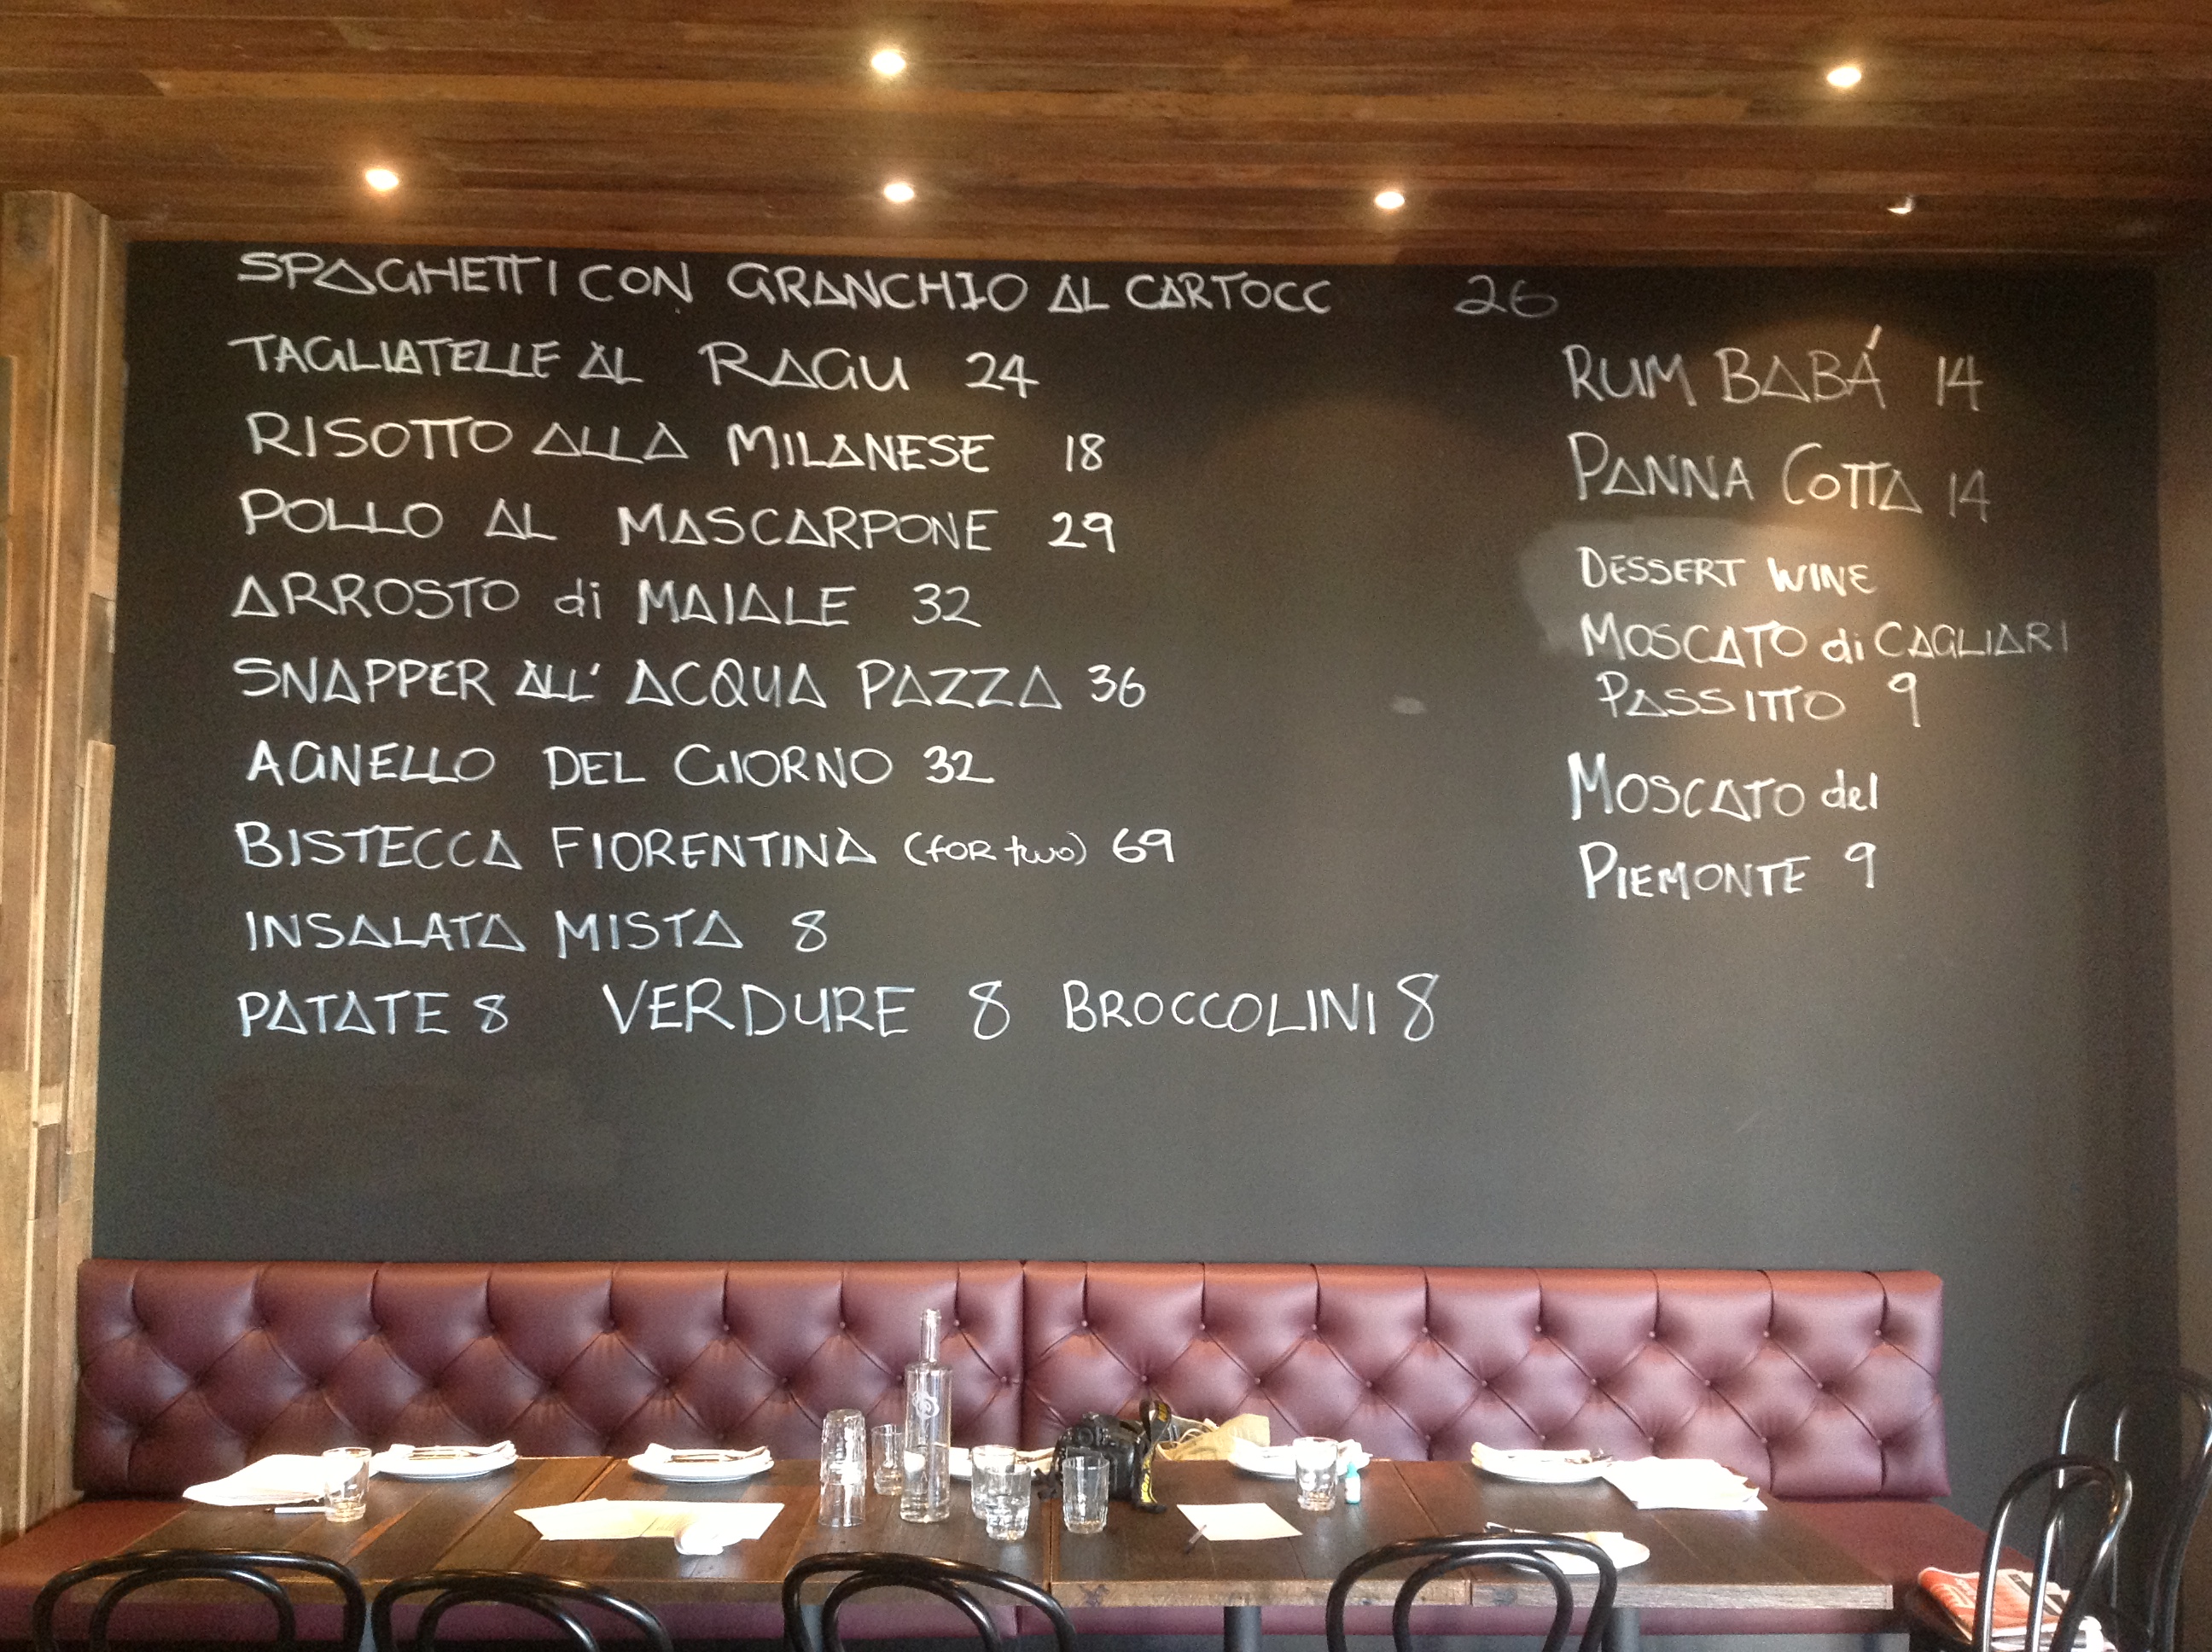 SPAGHETTI CON GRANCHIO AL CARTOCC 26
TAGLIATELLE AL RAGU 24
RISOTTO ALLA MILANESE 18
POLLO AL MASCARPONE 29
ARROSTO di MAIALE 32
SNAPPER ALL' ACQUA PAZZA 36
AGNELLO DEL GIORNO 32
BISTECCA FIORENTINA (for two) 69
INSALATA MISTA 8
PATATE 8 VERDURE 8 BROCCOLINI 8
RUM BABÁ 14
PANNA COTTA 14
DESSERT WINE
MOSCATO di CAGLIARI
PASSITTO 9
MOSCATO del
PIEMONTE 9